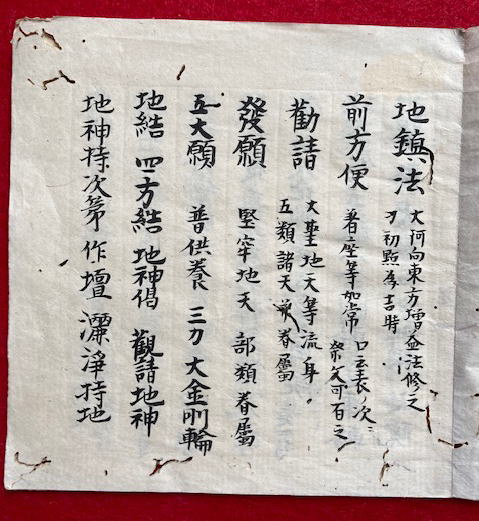 地鎮法
大阿向東方增益法修之
才初點為吉時
前方便
着座等如常
口云表ノ次ニ
祭文可百之
勸請
大聖地天等流身
五類諸天并眷屬
發願 堅牢地天 部類眷屬
五大願 普供養 三力 大金剛輪
地結 四方結 地神偈 觀請地神
地神持次第 作壇 灑淨持地